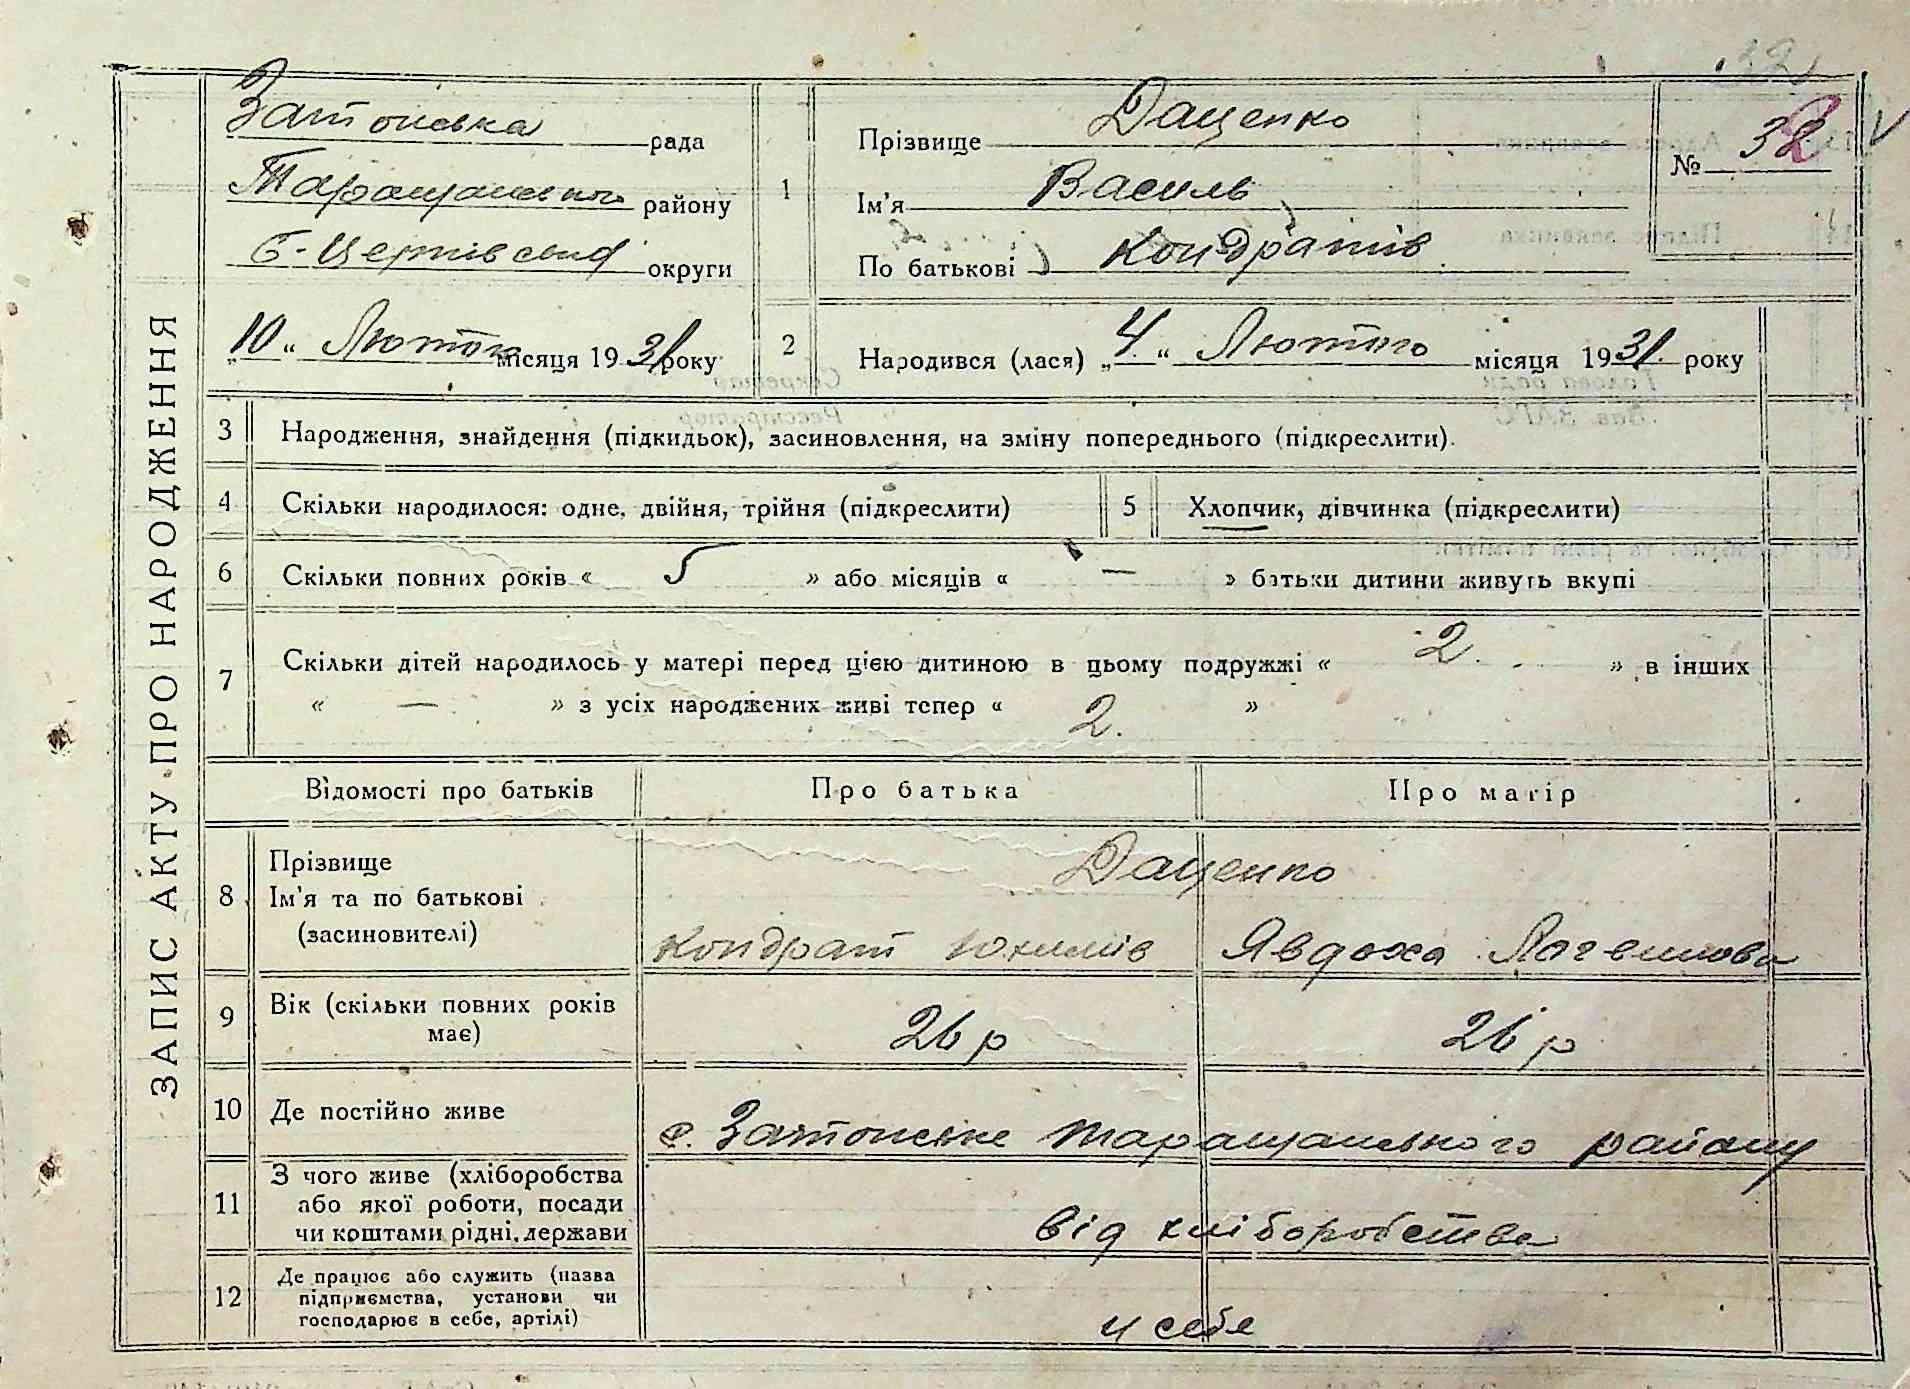 32
ЗАПИС АКТУ ПРО НАРОДЖЕННЯ
Затонська рада
Таращанського району
Б-Церківської округи
„10“ Лютого місяця 1931 року
1
Прізвище Даценко
Ім'я Василь
По батькові Кондратів
№ 32
2
Народився (лася) „4“ Лютого місяця 1931. року
3 Народження, знайдення (підкидьок), засиновлення, на зміну попереднього (підкреслити).
4 Скільки народилося: одне, двійня, трійня (підкреслити) 5 Хлопчик, дівчинка (підкреслити)
6 Скільки повних років « 5 » або місяців « — » батьки дитини живуть вкупі
7 Скільки дітей народилось у матері перед цією дитиною в цьому подружжі « 2. » в інших
« — » з усіх народжених живі тепер « 2. »
Відомості про батьків Про батька Про матір
8 Прізвище
Ім'я та по батькові
(засиновителі)
Даценко
Кондрат Юхимів Явдоха
9 Вік (скільки повних років
має)
26 р 26 р
10 Де постійно живе
с. Затонське Таращанського району
11 З чого живе (хліборобства
або якої роботи, посади
чи коштами рідні, держави
від хліборобства
12 Де працює або служить (назва
підприємства, установи чи
господарює в себе, артілі)
у себе